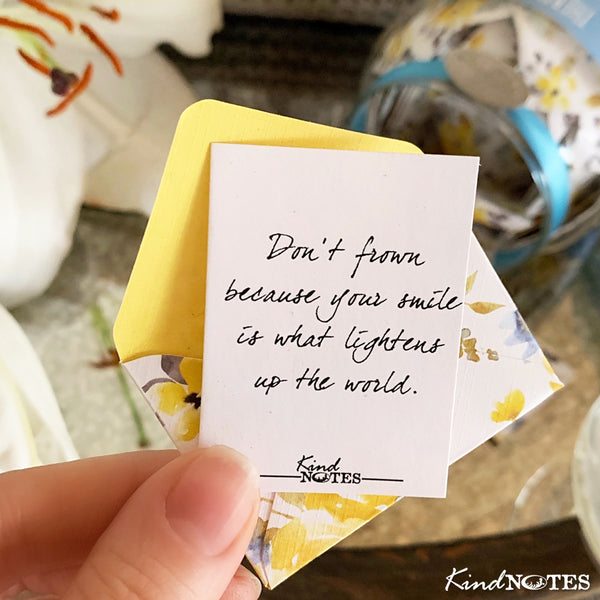 Don't frown
because your smile
is what lightens
up the world.
Kind
NOTES
KindNOTES